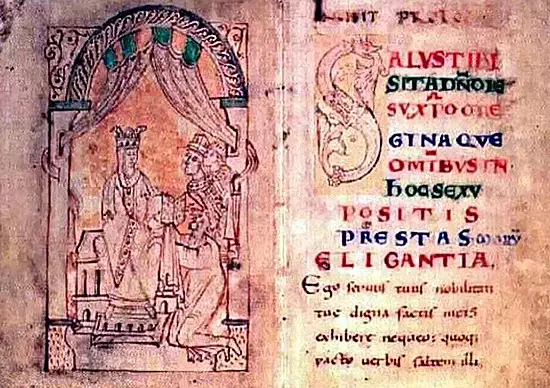 INCIPIT PROLO
SALVS TIBI
SIT A DÑO IH
V XPO O RE
GINA QVE
OMNIBUS IN
hOC SEXV
POSITIS
PRESTAS MORV̄
ELIGANTIA.
Ego seruus tuus nobilitati
tue digna factis meis
exhibere nequeo; quoq;
pacto uerbis saltem illi